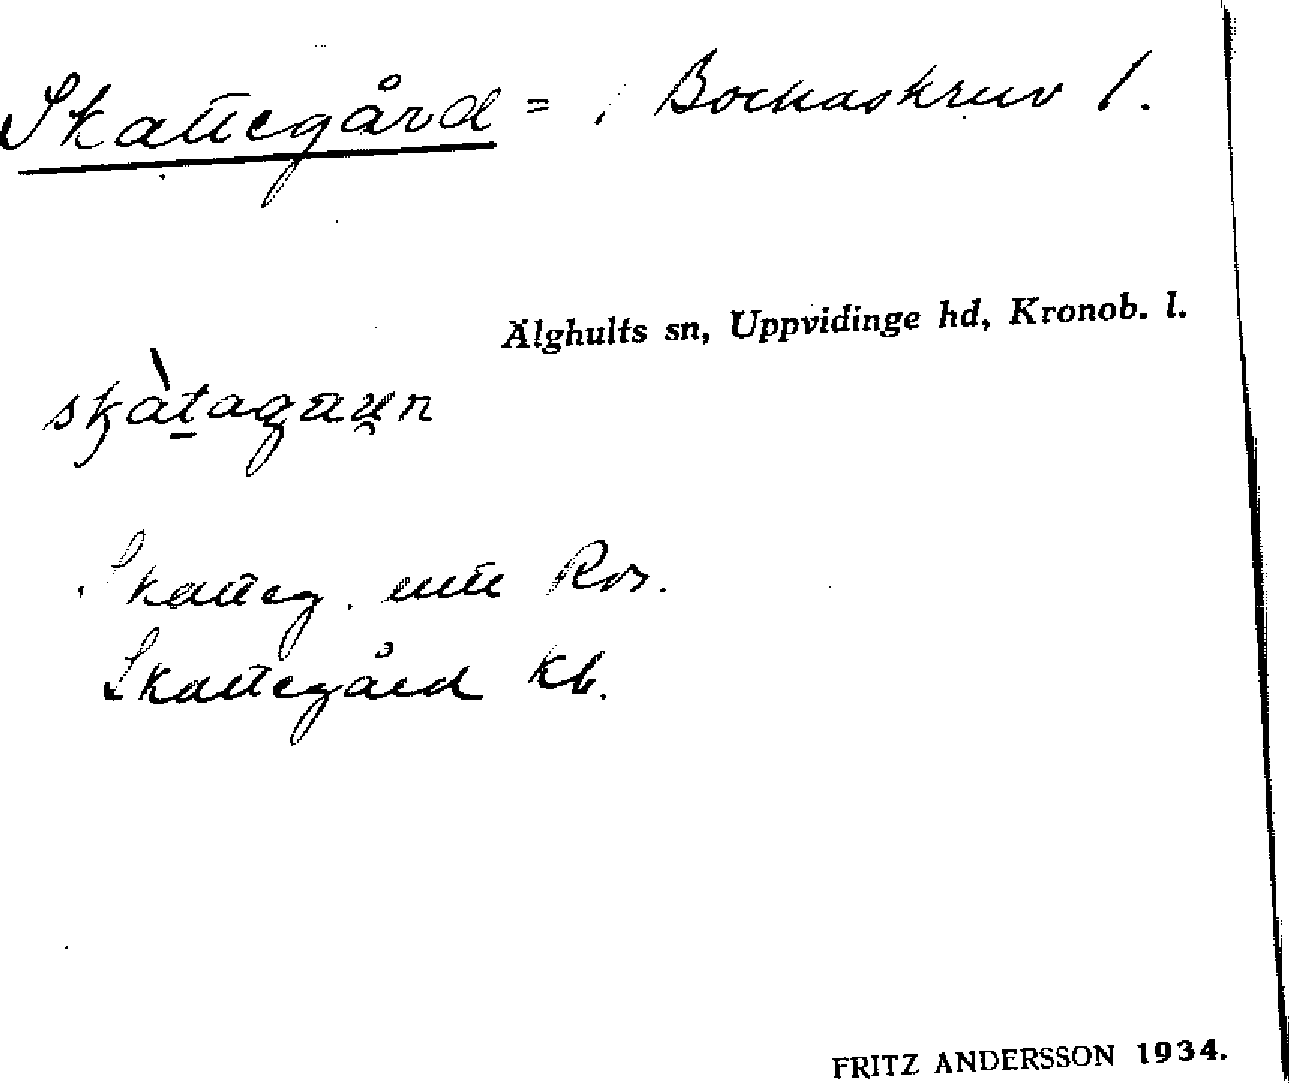 Skattegård = i Bockaskruv 1.
Älghults sn, Uppvidinge hd, Kronob. l.
skàtagaun
Skatteg. Ros.
Skattegård Kb.
FRITZ ANDERSSON 1934.